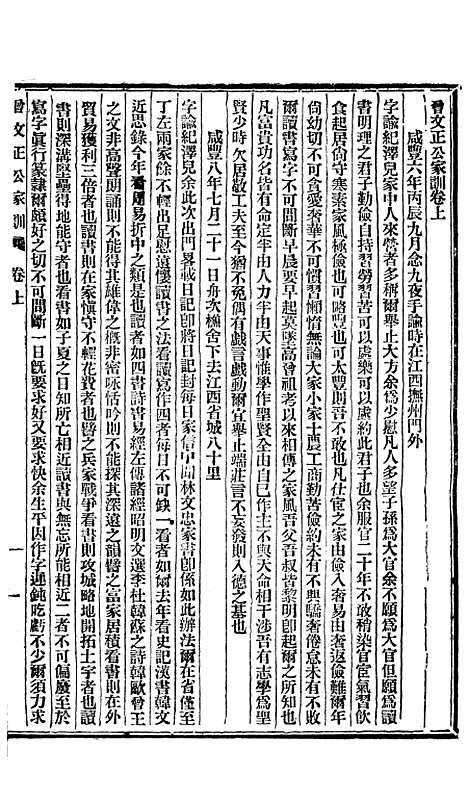 曾文正公家訓卷上
咸豐六年丙辰九月念九夜手諭時在江西撫州門外
字諭紀鴻兒家中人來營者多稱爾舉止大方余爲少慰凡人多望子孫爲大官余不願爲大官但願爲讀
書明理之君子勤儉自持習勞習苦可以處樂可以處約此君子也余服官二十年不敢稍染官宦氣習飲
食起居尚守寒素家風極儉也可略豐也可太豐則吾不敢也凡仕宦之家由儉入奢易由奢返儉難爾年
尚幼切不可貪愛奢華不可慣習懶惰無論大家小家士農工商勤苦儉約未有不興驕奢倦怠未有不敗
爾讀書寫字不可間斷早晨要早起莫墜高曾祖考以來相傳之家風吾父吾叔皆黎明卽起爾之所知也
凡富貴功名皆有命定半由人力半由天事惟學作聖賢全由自己作主不與天命相干涉吾有志學爲聖
賢少時欠居敬工夫至今猶不免偶有戲言戲動爾宜舉止端莊言不妄發則入德之基也
咸豐八年七月二十一日舟次樵舍下去江西省城八十里
字諭紀澤兒余此次出門畧載日記卽將日記封每日家信中聞林文忠家書卽係如此辦法爾在省僅至
丁左兩家餘不輕出足慰遠懷讀書之法看讀寫作四者每日不可缺一看者如爾去年看史記漢書韓文
近思錄今年看周易折中之類是也讀者如四書詩書易經左傳諸經昭明文選李杜韓蘇之詩韓歐曾王
之文非高聲朗誦則不能得其雄偉之概非密咏恬吟則不能探其深遠之韻譬之富家居積看書則在外
貿易獲利三倍者也讀書則在家愼守不輕花費者也譬之兵家戰爭看書則攻城略地開拓土宇者也讀
書則深溝堅壘得地能守者也看書如子夏之日知所亡相近讀書與無忘所能相近二者不可偏廢至於
寫字眞行篆隸爾頗好之切不可間斷一日旣要求好又要求快余生平因作字遲鈍吃虧不少爾須力求
曾文正公家訓 卷上
一